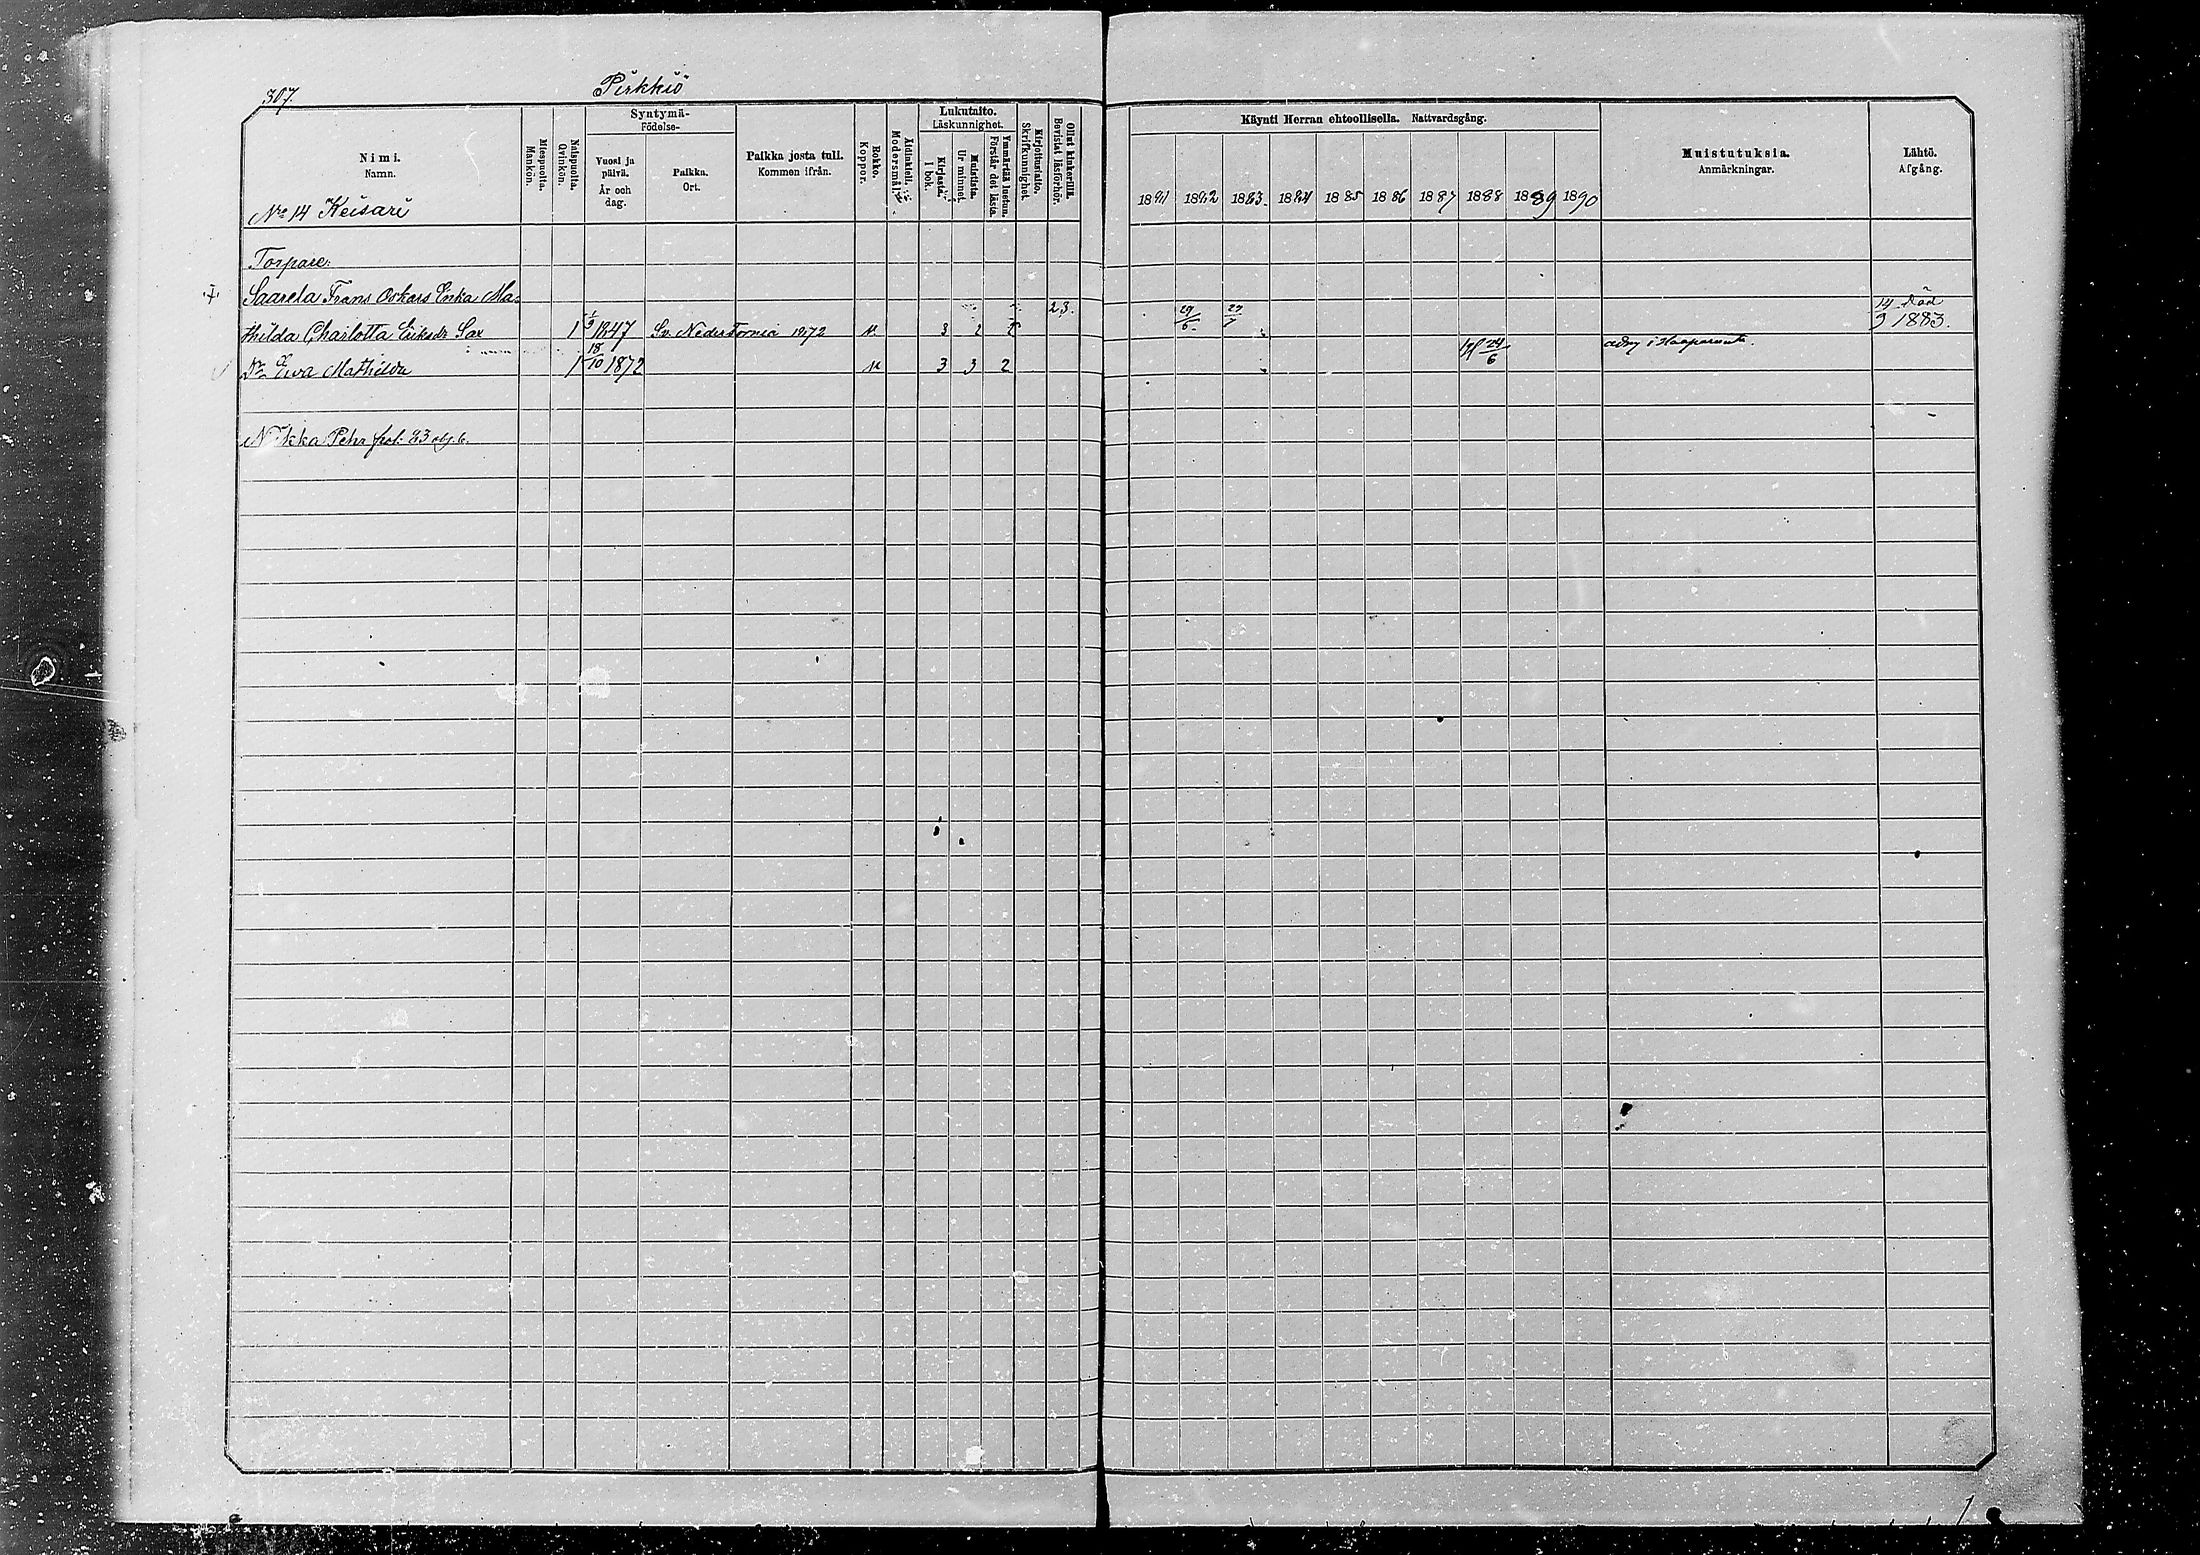 307.
Pirkkiö
Nimi.
Namn.
No 14 Keisari
Miespuolia.
Mankön.
Naispuolia.
Qvinkön.
Syntymä-
Födelse-
Vuosi ja päivä.
År och dag.
Paikka.
Ort.
Paikka josta tuli.
Kommen ifrån.
Rokko.
Koppor.
Äidinkieli.
Modersmål.
Lukutaito.
Läskunnighet.
Kirjasta.
I bok.
Muistista.
Ur minnet.
Ymmärtää luetun.
Förstår det lästa.
Kirjoitustaito.
Skrifkunnighet.
Ollut kinkerillä.
Bevistat läsförhör.
Käynti Herran ehtoollisella. Nattvardsgång.
1881 1882 1883 1884 1885 1886 1887 1888 1889 1890
Muistutuksia.
Anmärkningar.
Lähtö.
Afgång.
Torpare:
Saarela Frans Oskars Enka Ma- 23. 29/6 död
thilda Charlotta Eriksdr Sax 1 1847 Sv. Nedertornea 1872 3 2 14/9 1883.
Dr Eva Mathilda 1 18/10 1872 3 3 2 24/6
Nikka Pehr fol: 23